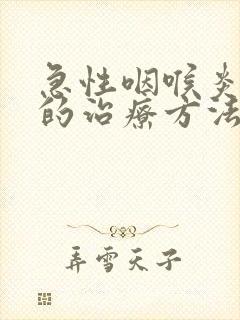 急性咽喉炎
的治疗方法
弄雪天子